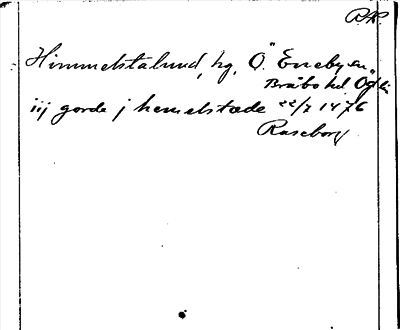 RAP.
Himmelstalund, hg, Ö. Eneby sn,
Bråbo hd Ög l:n
iij gorde j hemelstæde 22/7 1476
Raseborg